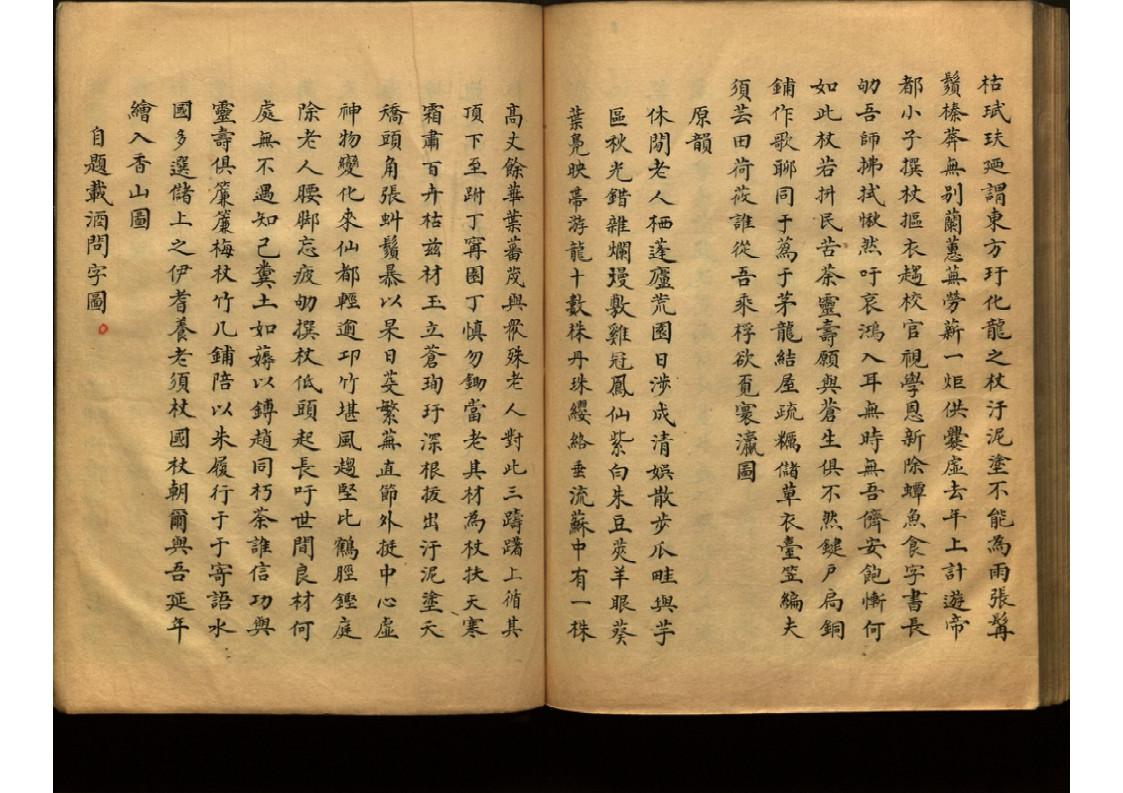 枯珷玞廼謂東方玗化龍之杖汙泥塗不能為雨張髯
鬚榛莽無別蘭蕙蕪勞薪一炬供爨虛去年上計遊帝
都小子撰杖摳衣趨校官視學恩新除蟫魚食字書長
劬吾師拂拭愀然吁哀鴻入耳無時無吾儕安飽慚何
如此杖若拼民苦荼靈壽願與蒼生俱不然鍵戶扃銅
鋪作歌聊同于蒍于茅龍結屋疏糲儲草衣臺笠編夫
須芸田荷莜誰從吾乘桴欲覓寰瀛圖
原韻
休閒老人栖蓬廬荒園日涉成清娛散步爪畦與芋
區秋光錯雜斕墁敷雞冠鳳仙紫白朱豆莢羊眼葵
葉鳧映蕚游龍十數株丹珠纓絡垂流蘇中有一株
高丈餘華葉蕃茂與衆殊老人對此三躊躇上循其
頂下至跗丁寧園丁慎勿鋤當老其材為杖扶天寒
霜肅百卉枯兹材玉立蒼珣玗深根拔出汙泥塗夭
矯頭角張虯鬚暴以杲日芟繁蕪直節外挺中心虛
神物變化來仙都輕逾邛竹堪風趨堅比鶴脛鏗庭
除老人腰脚忘疲劬撰杖低頭起長吁世間良材何
處無不遇知己糞土如薅以鎛趙同朽荼誰信功與
靈壽俱簾簾梅杖竹几鋪陪以朱履行于于寄語水
國多選儲上之伊耆養老須杖國杖朝爾與吾延年
繪入香山圖
自題載酒問字圖